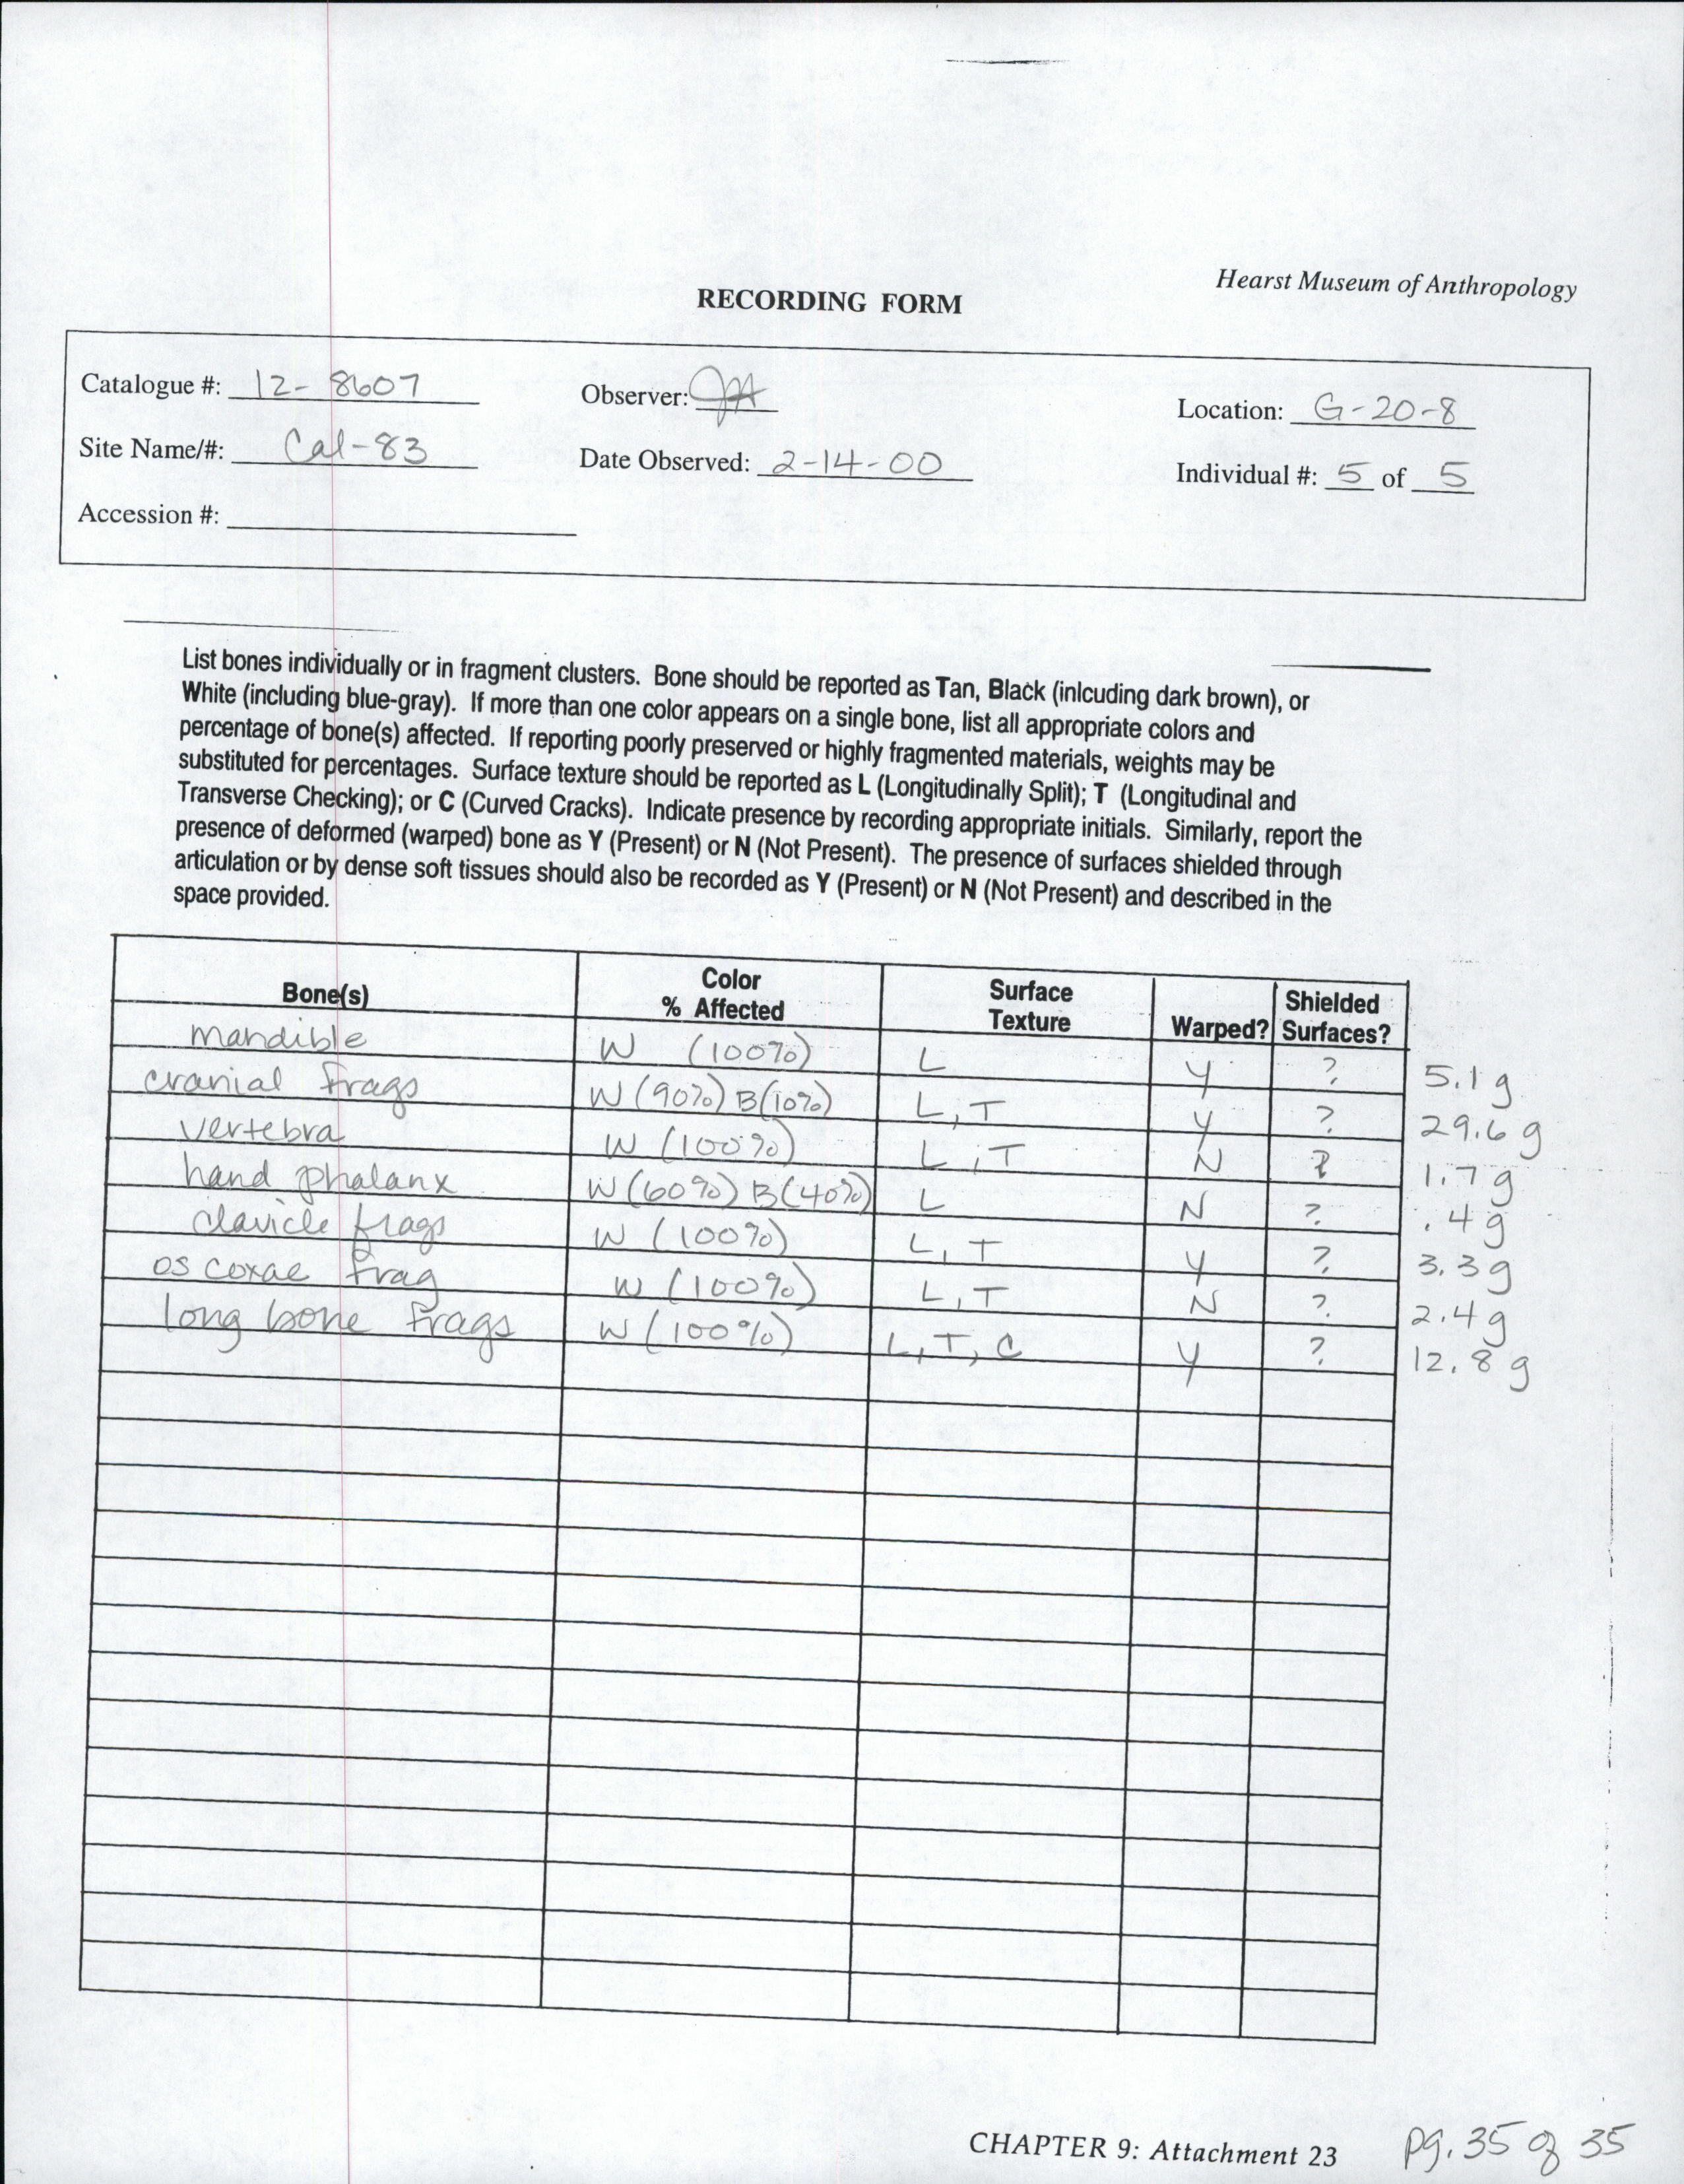 Hearst Museum of Anthropology
RECORDING FORM
Catalogue #: 12-8607 Observer: JA Location: G-20-8
Site Name/#: Cal-83 Date Observed: 2-14-00 Individual #: 5 of 5
Accession #:
List bones individually or in fragment clusters. Bone should be reported as Tan, Black (inlcuding dark brown), or
White (including blue-gray). If more than one color appears on a single bone, list all appropriate colors and
percentage of bone(s) affected. If reporting poorly preserved or highly fragmented materials, weights may be
substituted for percentages. Surface texture should be reported as L (Longitudinally Split); T (Longitudinal and
Transverse Checking); or C (Curved Cracks). Indicate presence by recording appropriate initials. Similarly, report the
presence of deformed (warped) bone as Y (Present) or N (Not Present). The presence of surfaces shielded through
articulation or by dense soft tissues should also be recorded as Y (Present) or N (Not Present) and described in the
space provided.
Bone(s) Color % Affected Surface Texture Warped? Shielded Surfaces?
mandible W (100%) L Y ? 5.1 g
cranial frags W (90%) B (10%) L, T Y ? 29.6 g
vertebra W (100%) L, T N ? 1.7 g
hand phalanx W (60%) B (40%) L N ? .4 g
clavicle frags W (100%) L, T Y ? 3.3 g
os coxae frag W (100%) L, T N ? 2.4 g
long bone frags W (100%) L, T, C Y ? 12.8 g
CHAPTER 9: Attachment 23 pg. 35 of 35